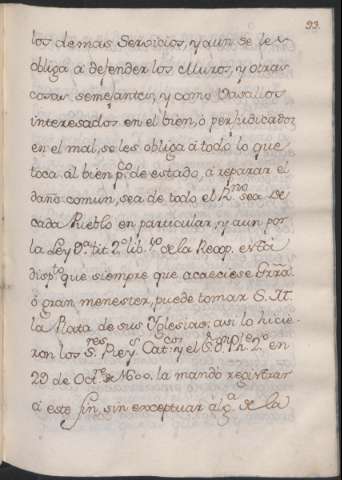 93.
los demas Servicios, y aun se les
obliga a defender los Muros, y otras
cosas semejantes, y como Vasallos
interesados en el bien, ò perjudicados
en el mal, se les obliga à todo lo que
toca al bien p.co de estado, à reparar el
daño comun, sea de todo el R.no sea de
cada Pueblo en particular, y aun por
la Ley 9.a tit 2.o lib. 1.o de la Recop. està
disp.to que siempre que acaeciese Grrã
ò gran menester, puede tomar S. M.
la Plata de sus Yglesias, asi lo hicie-
ron los S.res Rey.s Cat.cos y el S.r D.n Ph.e 2.o en
29 de Oct.re de 1600. la mandò registrar
a este fin, sin exceptuar alg.a de la